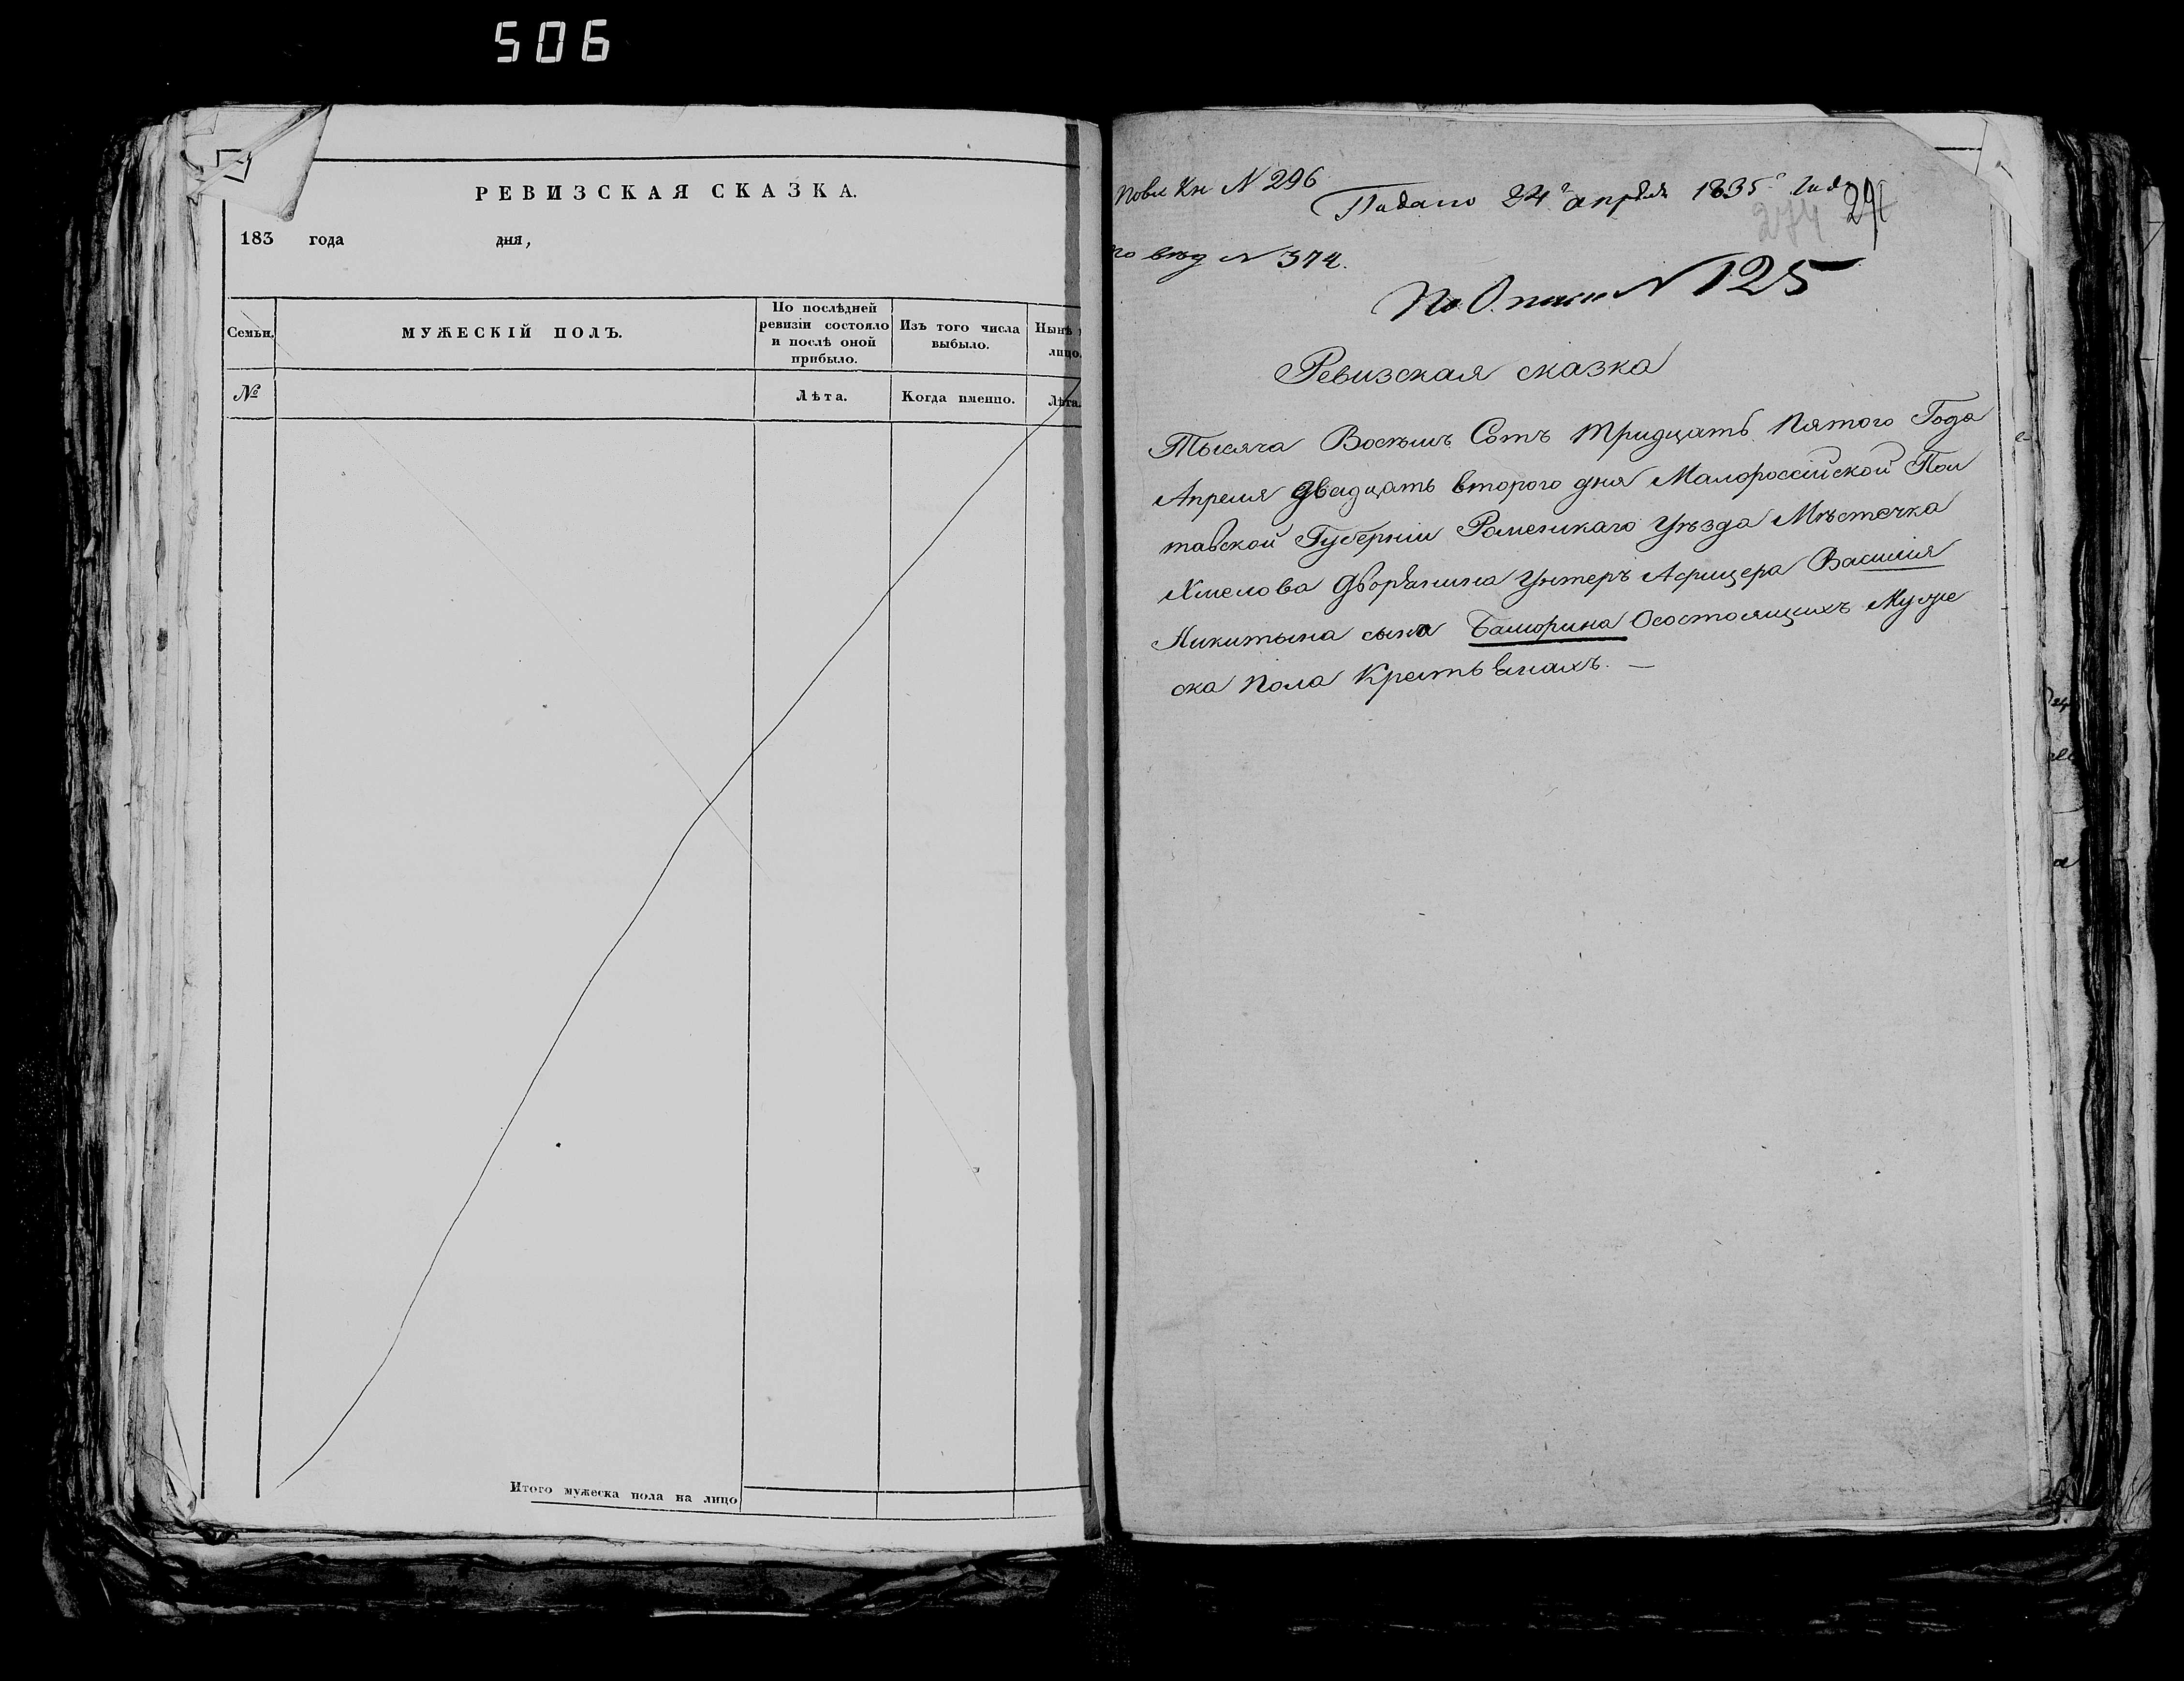 506
РЕВИЗСКАЯ СКАЗКА.
183 года дня,
Семьи.
МУЖЕСКІЙ ПОЛЪ.
По послѣдней ревизіи состояло и послѣ оной прибыло.
Изъ того числа выбыло.
Нынѣ лицо.
№
Лѣта.
Когда именно.
Лѣта.
Итого мужеска пола на лицо
Кн N 296
Подано 24 апреля 1835 года
274
291
N 374.
По Описи N 125
Ревизская сказка
Тысяча Восѣмъ Сотъ тридцать Пятого Года
Апреля двадцать второго дня Малороссійской Пол
тавской Губерніи Роменскаго Уѣзда Мѣстечка
Хмелова Дворянина Унтеръ Афицера Василия
Никитына сына Осостоящихъ Муже
ска пола Крестьянахъ. —